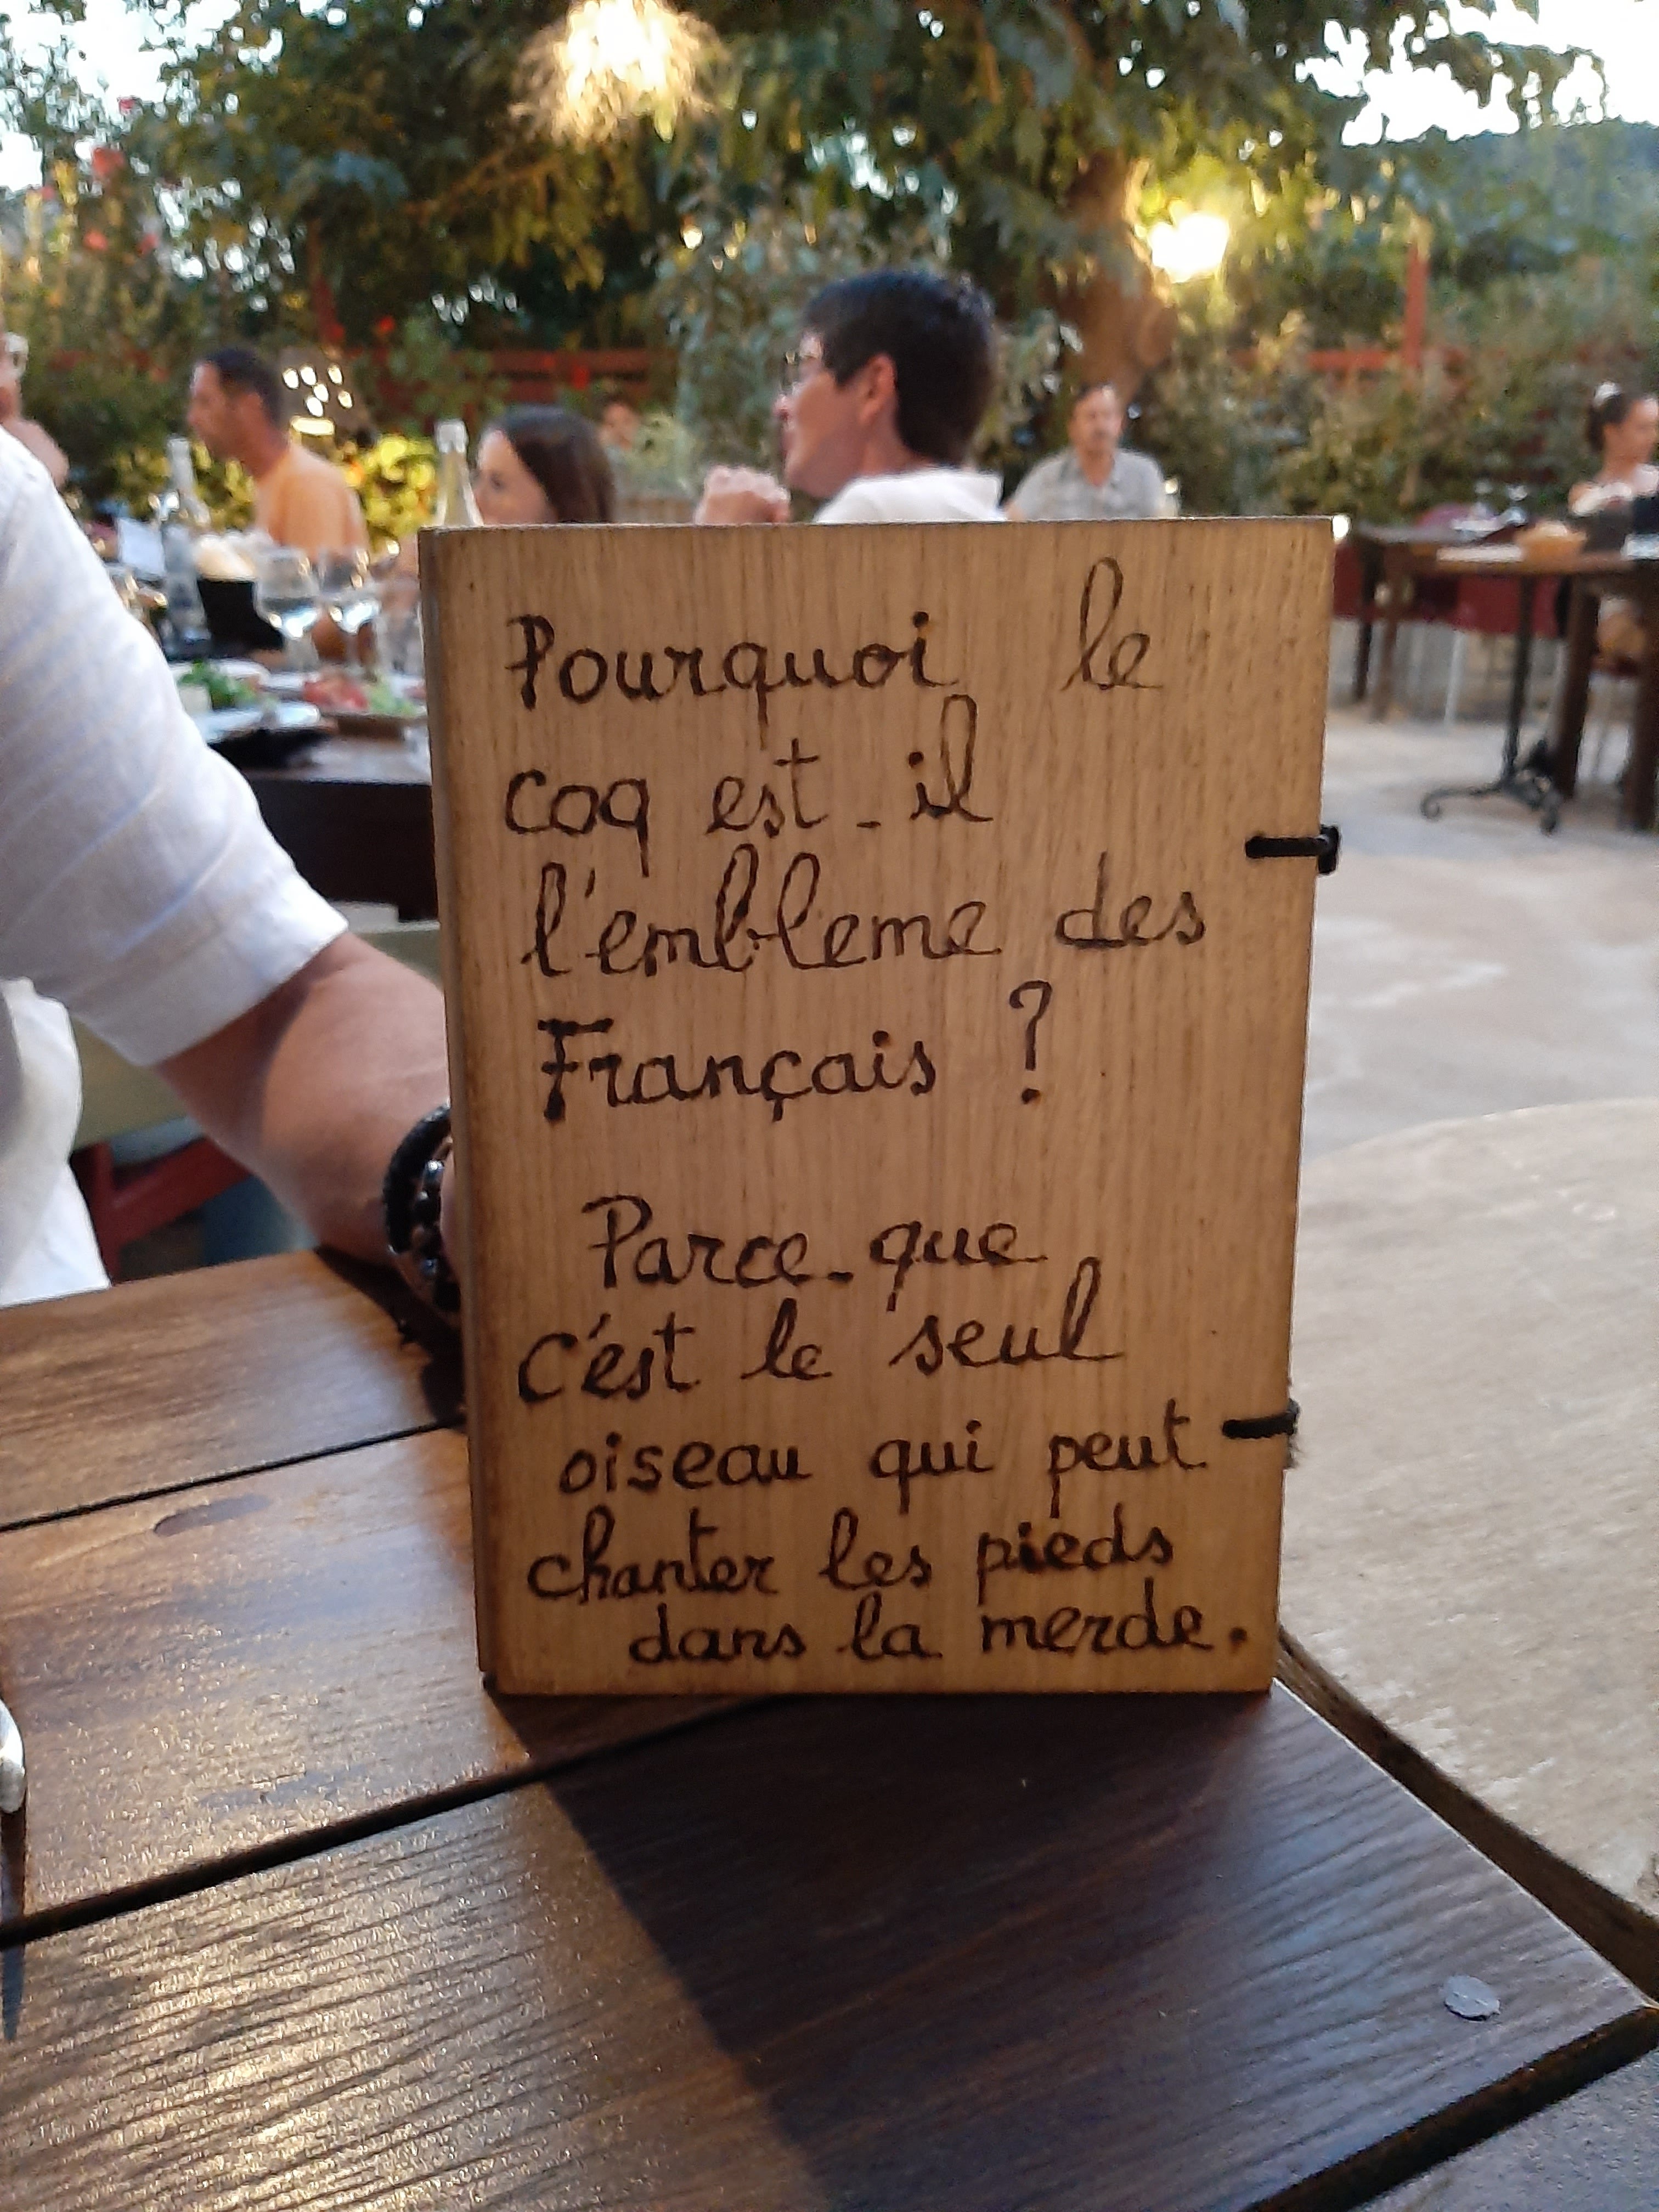 Pourquoi le
coq est-il
l'embleme des
Français ?
Parce-que
c'est le seul
oiseau qui peut
chanter les pieds
dans la merde.